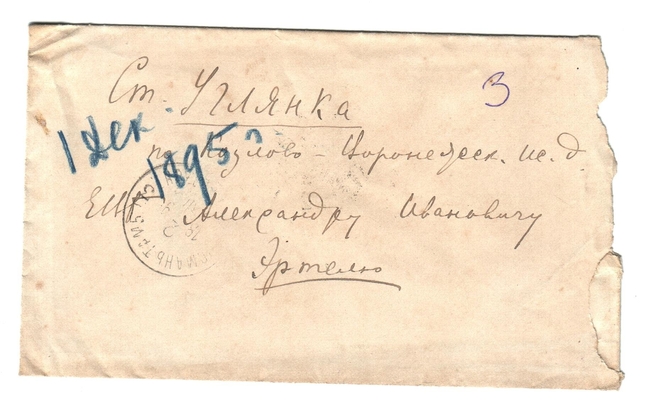 Ст. Углянка
3
1 Дек.
1895
по Козлово-Воронежск. ж. д
ЕВ
Александру Ивановичу
Эртелю